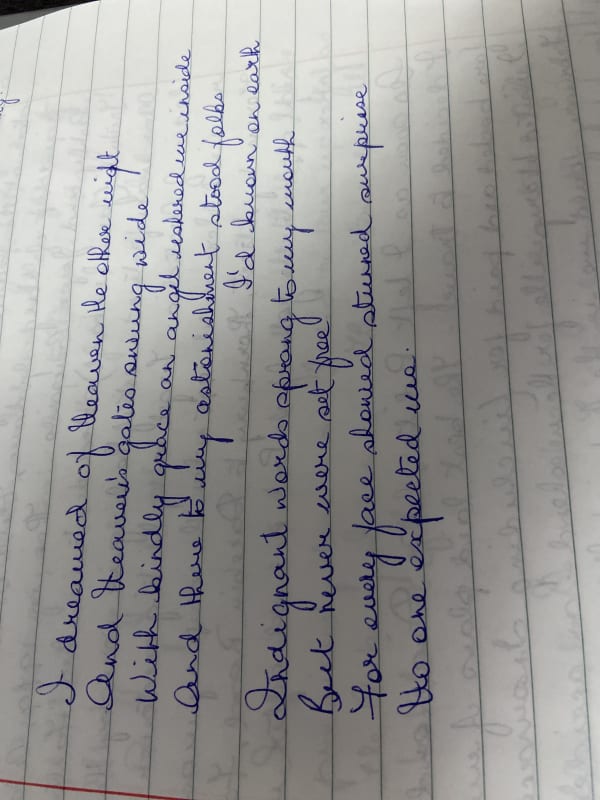 I dreamed of Heaven the other night
And Heaven's gates swung wide
With kindly grace an angel ushered me inside
And there to my astonishment stood folks
I'd known on earth
Indignant words sprang to my mouth
But never were set free
For every face showed stunned surprise
No one expected me.